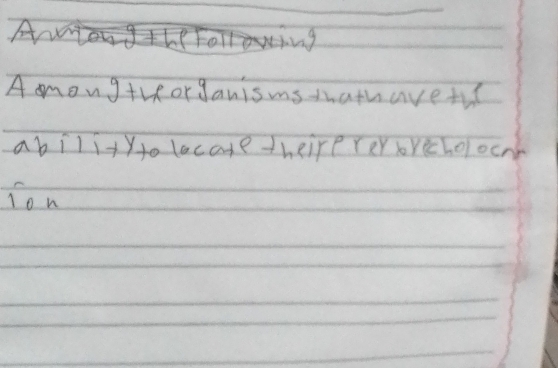 Among the following
Among the organisms that have the
ability to locate their prey by echolocat
ion